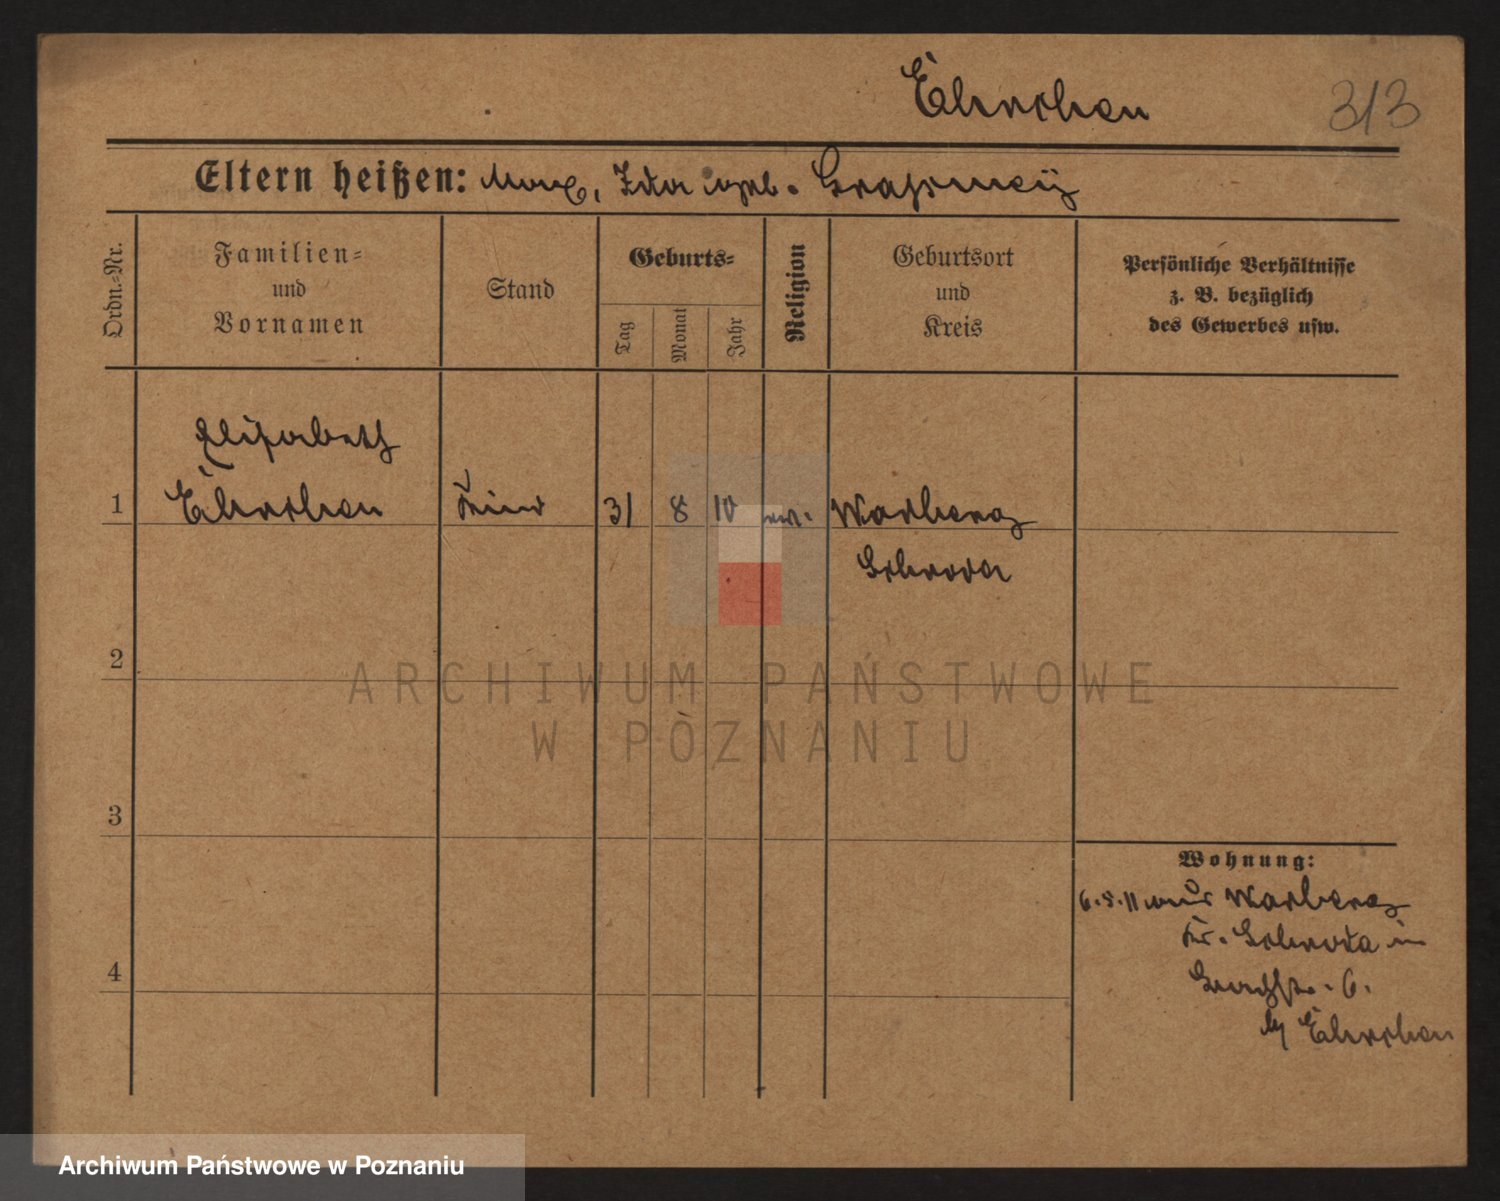 Ehrchen 313
Eltern heißen: Max, Ida geb. Grassmey
Ordn.=Nr.
Familien=
und
Vornamen
Stand
Geburts=
Tag
Monat
Jahr
Religion
Geburtsort
und
Kreis
Persönliche Verhältnisse
z. B. bezüglich
des Gewerbes usw.
Elisabeth
1 Ehrchen Kind 31 8 10 ev. Warberg
Schroda
2
3
4
Wohnung:
6.8.11 aus Warberg
Kr. Schroda in
6.
b/ Ehrchen
ARCHIWUM PAŃSTWOWE
W POZNANIU
Archiwum Państwowe w Poznaniu